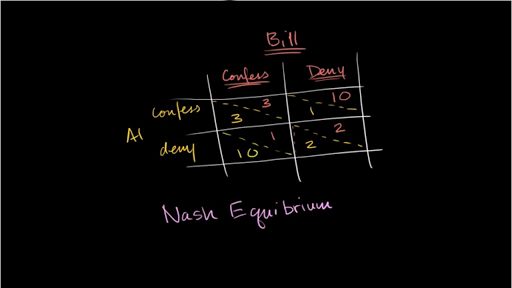 Bill
Confess Deny
confess 3 3 10 1
Al
deny 1 10 2 2
Nash Equibrium